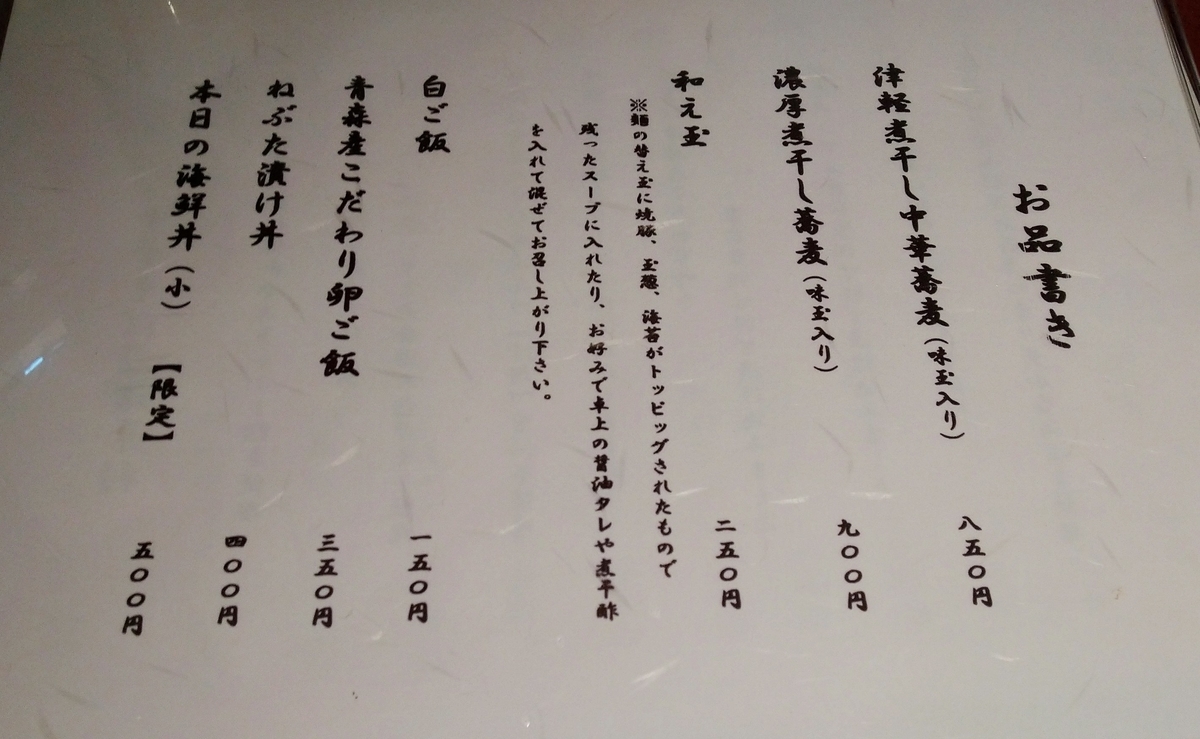 お品書き
津軽煮干し中華蕎麦（味玉入り）　八五〇円
濃厚煮干し蕎麦（味玉入り）　九〇〇円
和え玉　二五〇円
※麺の替え玉に焼豚、玉葱、海苔がトッピングされたもので
残ったスープに入れたり、お好みで卓上の醤油タレや煮干酢
を入れて混ぜてお召し上がり下さい。
白ご飯　一五〇円
青森産こだわり卵ご飯　三五〇円
ねぶた漬け丼　四〇〇円
本日の海鮮丼（小）【限定】　五〇〇円